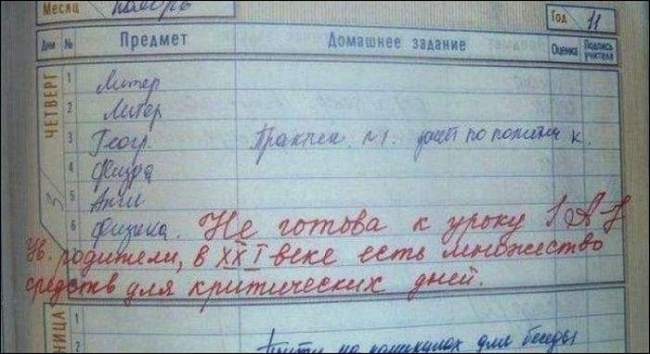 Месяц ноябрь Год 11
Дни № Предмет Домашнее задание Оценка Подпись учителя
ЧЕТВЕРГ 3
1 Литер
2 Литер
3 Геогр. Практич. №1. по полит к.
4 Физра
5 Англ
6 Физика. Не готова к уроку
Ув. родители, в XXI веке есть множество
средств для критических дней.
1
2 на каникулах для беседы